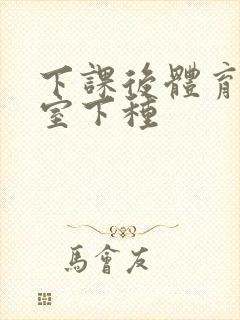 下課後體育
室下種
馬會友